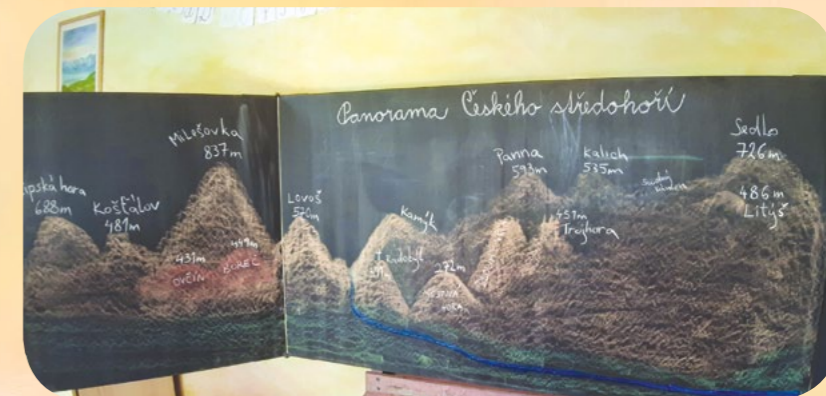 Panorama Českého středohoří
Milešovka
837m
688m
Košťálov
481m
431m
OVČÍN
449m
BOREČ
Lovoš
570m
Kamýk
Radobýl
272m
Panna
593m
Kalich
535m
457m
Trojhora
Sedlo
726m
486m
Litýš